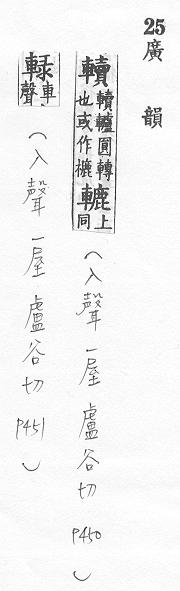 25 廣韻
轤圓轉也或作樚轆上同(入聲 一屋 盧谷切 P450)
車聲(入聲 一屋 盧谷切 P451)